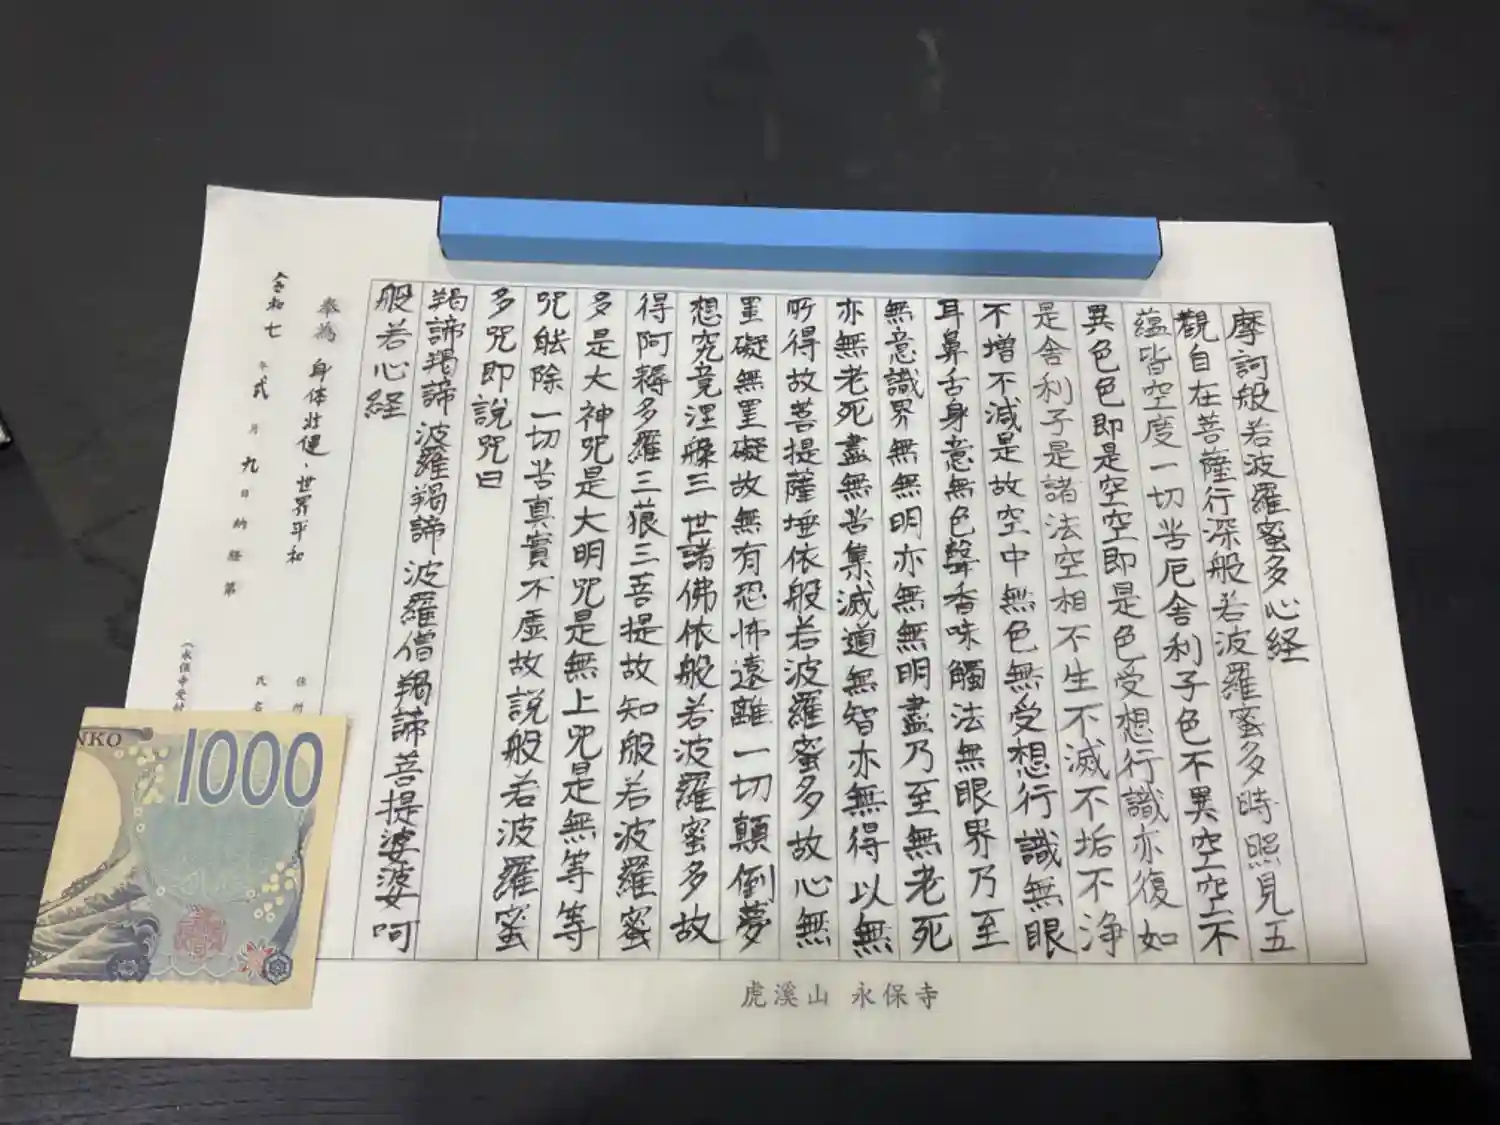 摩訶般若波羅蜜多心経
觀自在菩薩行深般若波羅蜜多時照見五
蘊皆空度一切苦厄舎利子色不異空空不
異色色即是空空即是色受想行識亦復如
是舎利子是諸法空相不生不滅不垢不浄
不増不減是故空中無色無受想行識無眼
耳鼻舌身意無色聲香味觸法無眼界乃至
無意識界無無明亦無無明盡乃至無老死
亦無老死盡無苦集滅道無智亦無得以無
所得故菩提薩埵依般若波羅蜜多故心無
罣礙無罣礙故無有恐怖遠離一切顛倒夢
想究竟涅槃三世諸佛依般若波羅蜜多故
得阿耨多羅三藐三菩提故知般若波羅蜜
多是大神咒是大明咒是無上咒是無等等
咒能除一切苦真實不虚故説般若波羅蜜
多咒即説咒曰
羯諦羯諦 波羅羯諦 波羅僧羯諦 菩提婆婆呵
般若心経
奉為 身体壮健、世界平和
住所
令和七年弐月九日納経第
氏名
(永保寺受付
虎溪山 永保寺
NKO
1000